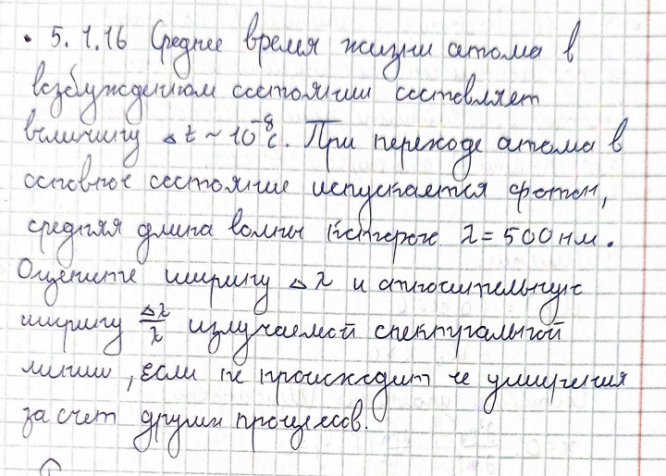 • 5.1.16 Среднее время жизни атома в
возбужденном состоянии составляет
величину Δt ~ 10⁻⁸ с. При переходе атома в
основное состояние испускается фотон,
средняя длина волны которого λ = 500 нм.
Оцените ширину Δλ и относительную
ширину Δλ/λ излучаемой спектральной
линии, если не происходит ее уширения
за счет других процессов.